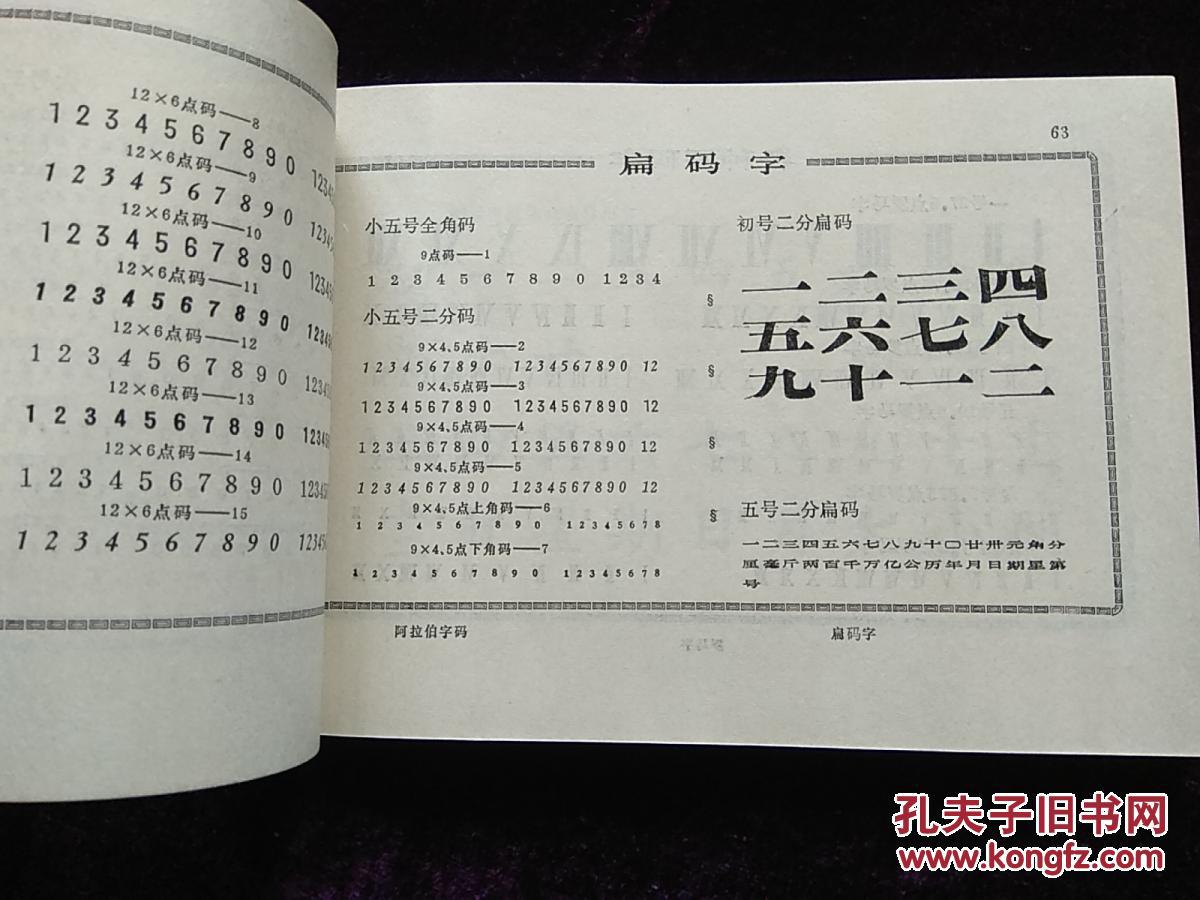 12×6点码——8
1 2 3 4 5 6 7 8 9 0 12345
12×6点码——9
1 2 3 4 5 6 7 8 9 0 12345
12×6点码——10
1 2 3 4 5 6 7 8 9 0 12345
12×6点码——11
1 2 3 4 5 6 7 8 9 0 12345
12×6点码——12
1 2 3 4 5 6 7 8 9 0 12345
12×6点码——13
1 2 3 4 5 6 7 8 9 0 12345
12×6点码——14
1 2 3 4 5 6 7 8 9 0 12345
12×6点码——15
1 2 3 4 5 6 7 8 9 0 12345
63
扁码字
小五号全角码
9点码——1
1 2 3 4 5 6 7 8 9 0 1 2 3 4
小五号二分码
9×4.5点码——2
1234567890 1234567890 12
9×4.5点码——3
1234567890 1234567890 12
9×4.5点码——4
1234567890 1234567890 12
9×4.5点码——5
1234567890 1234567890 12
9×4.5点上角码——6
1 2 3 4 5 6 7 8 9 0 1 2 3 4 5 6 7 8
9×4.5点下角码——7
1 2 3 4 5 6 7 8 9 0 1 2 3 4 5 6 7 8
阿拉伯字码
§
§
§
§
初号二分扁码
一二三四
五六七八
九十一二
五号二分扁码
一二三四五六七八九十〇廿卅元角分
厘毫斤两百千万亿公历年月日期星第
号
扁码字
孔夫子旧书网
www.kongfz.com